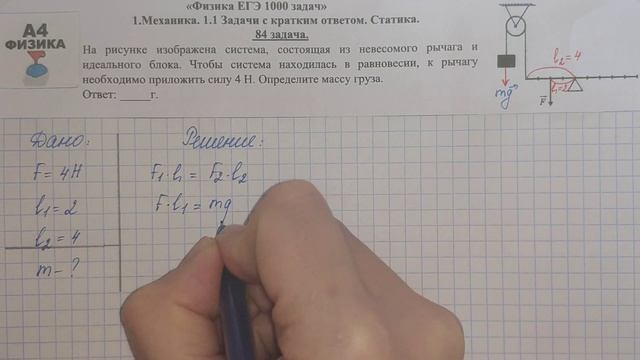 А4
ФИЗИКА
«Физика ЕГЭ 1000 задач»
1.Механика. 1.1 Задачи с кратким ответом. Статика.
84 задача.
На рисунке изображена система, состоящая из невесомого рычага и
идеального блока. Чтобы система находилась в равновесии, к рычагу
необходимо приложить силу 4 Н. Определите массу груза.
Ответ: _____г.
l₂ = 4
mg
l₁=2
F
Дано:
F = 4Н
l₁ = 2
l₂ = 4
m - ?
Решение:
F₁·l₁ = F₂·l₂
F·l₁ = mg